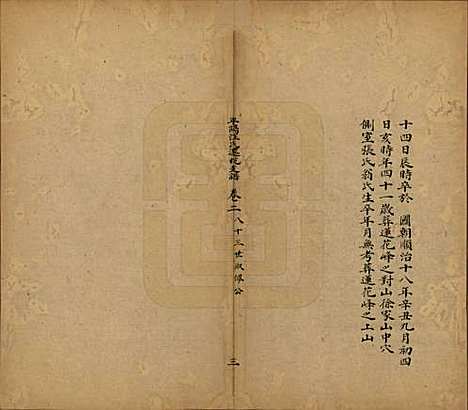 十四日辰時卒於　國朝順治十八年辛丑九月初四
日亥時年四十一歲葬蓮花峰之對山徐家山申穴
側室張氏翁氏生卒年月無考葬蓮花峰之上山
平陽汪氏遷杭支譜　卷二　八十三世　公　三